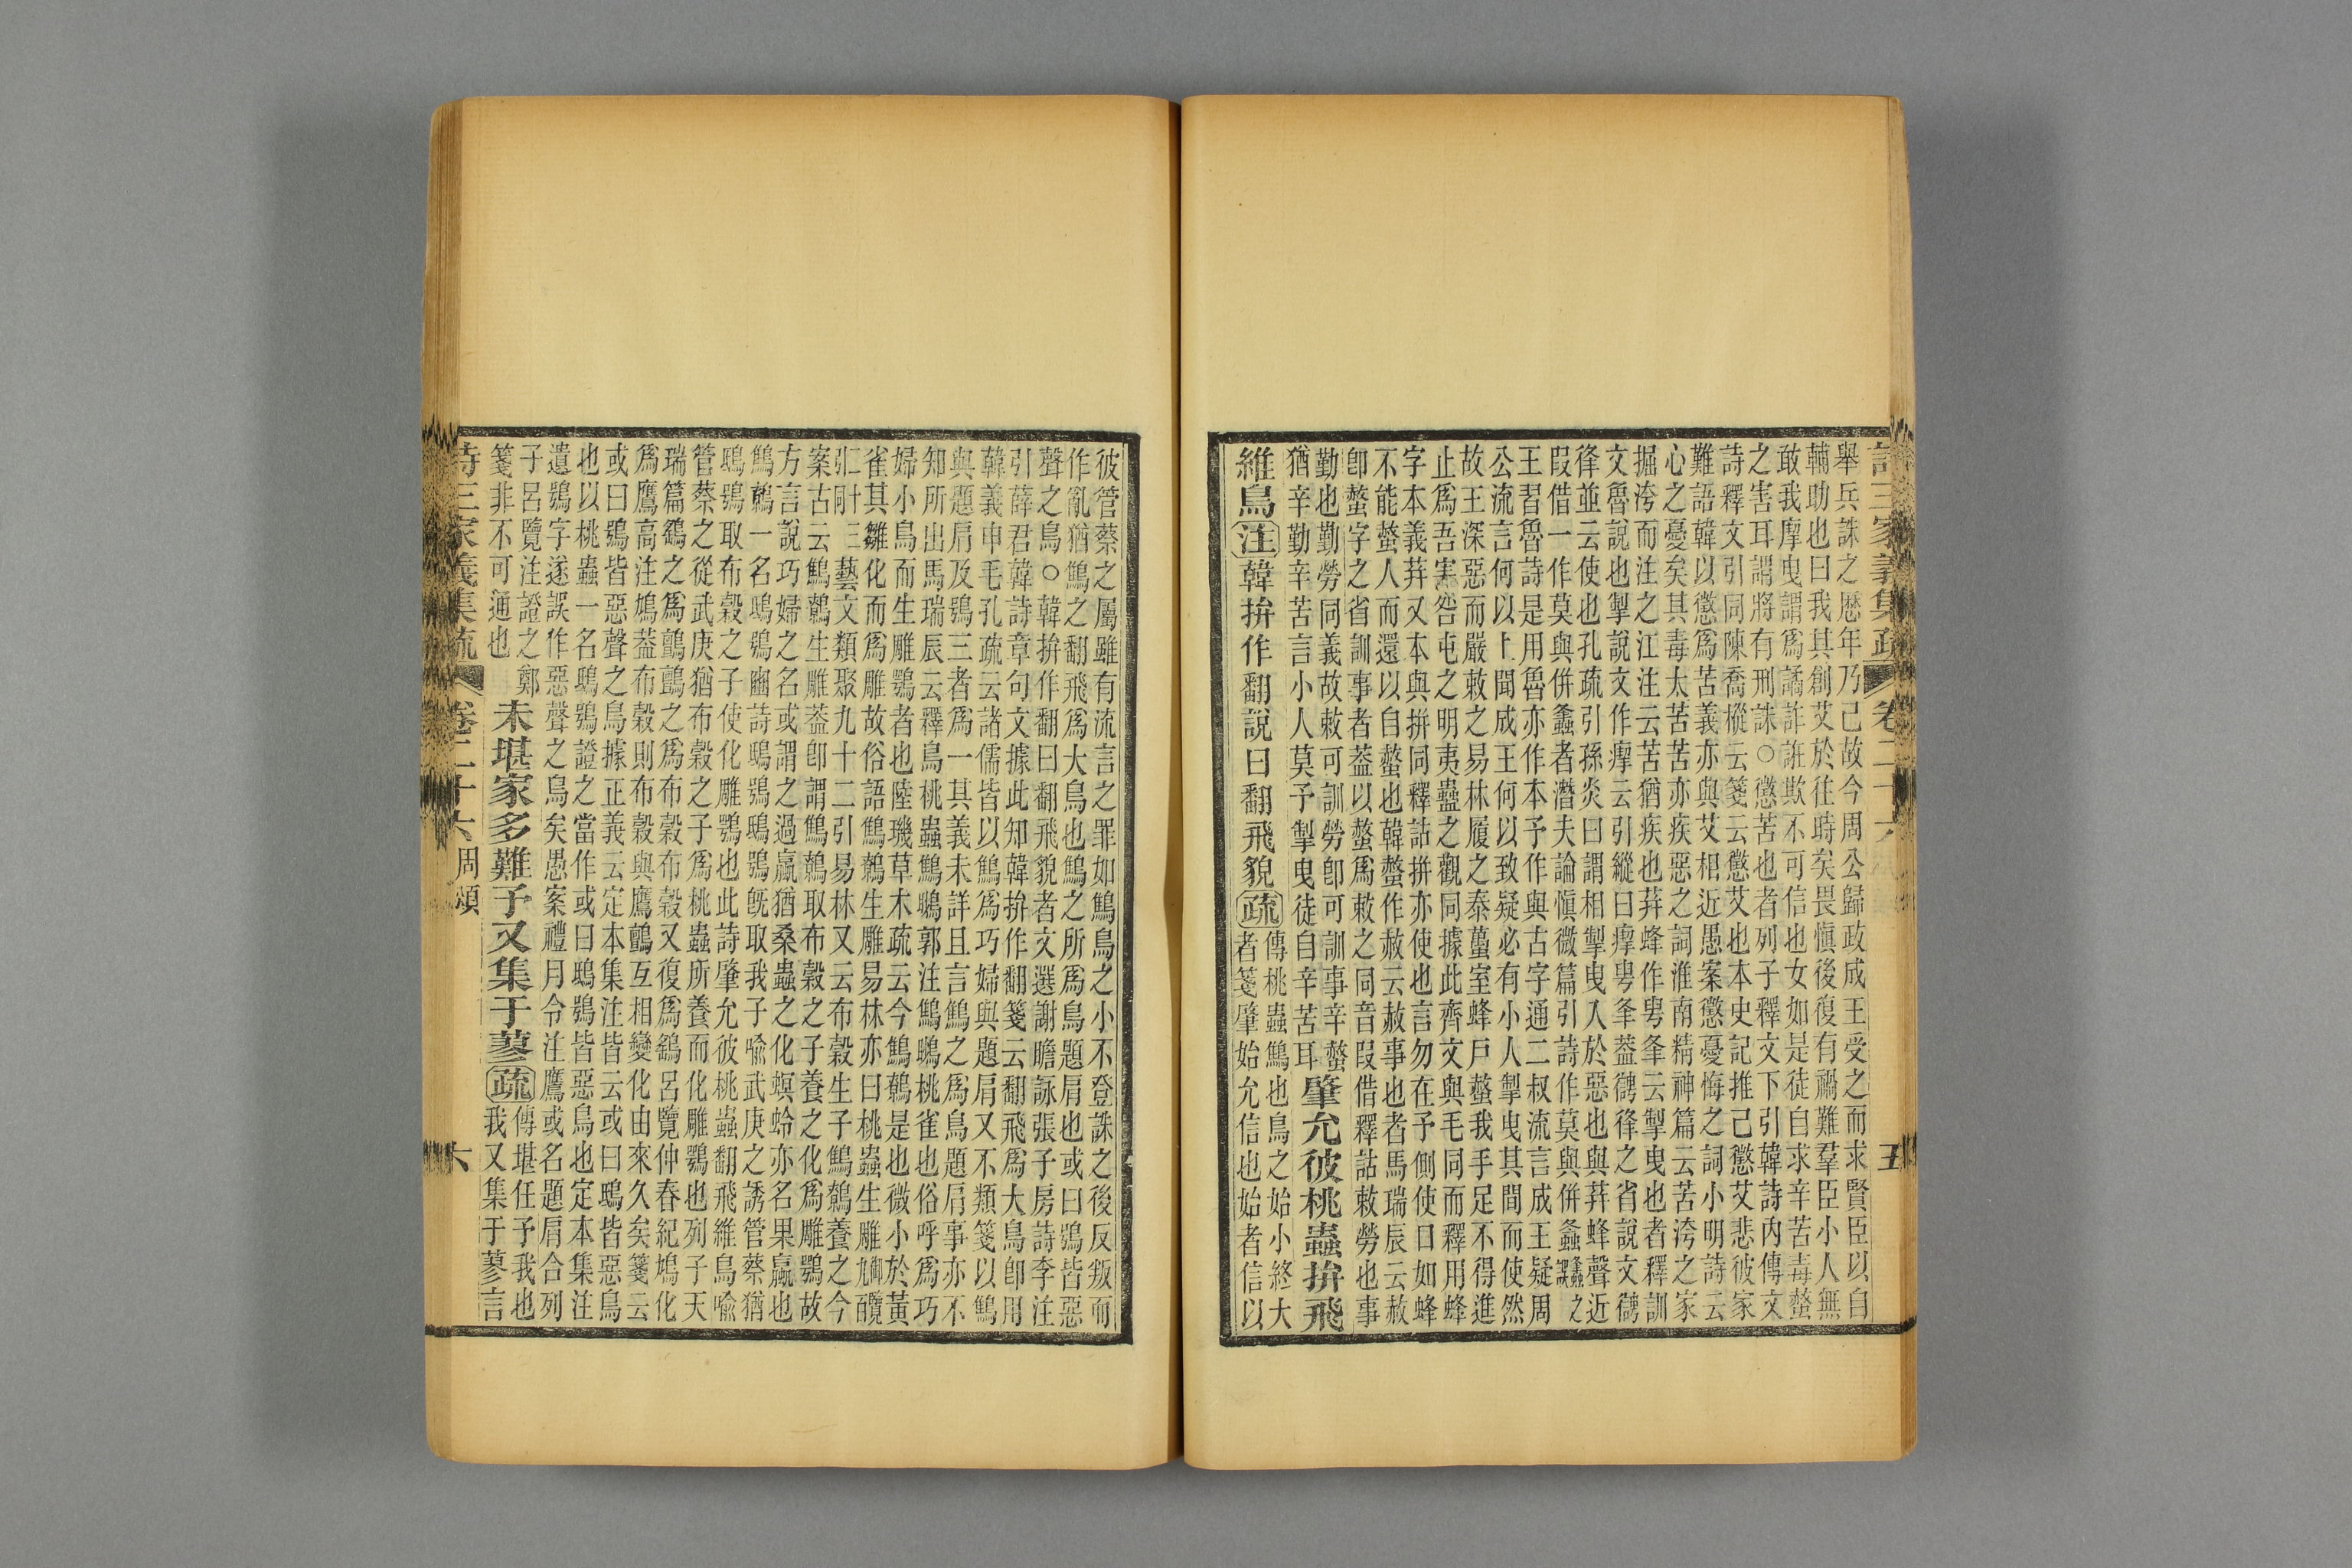 詩三家義集疏 卷二十六 五
舉兵誅之歷年乃已故今周公歸政成王受之而求賢臣以自
輔助也曰我其創艾於往時矣畏愼後復有禍難羣臣小人無
敢我摩曳謂爲譎詐誑欺不可信也女如是徒自求辛苦毒螫
之害耳謂將有刑誅○懲苦也者列子釋文下引韓詩内傳文
詩釋文引同陳喬樅云箋云懲艾也本史記推己懲艾悲彼家
難語韓以懲爲苦義亦與艾相近愚案懲憂悔之詞小明詩云
心之憂矣其毒太苦苦亦疾惡之詞淮南精神篇云苦洿之家
掘洿而注之江注云苦猶疾也荓蜂作甹夆云掣曳也者釋訓
文魯說也掣說文作云引縱曰甹夆葢之省說文
並云使也孔疏引孫炎曰謂相掣曳入於惡也與荓蜂聲近
叚借一作莫與併螽者潛夫論愼微篇引詩作莫與併螽螽誤之
王習魯詩是用魯亦作本予作與古字通二叔流言成王疑周
公流言何以上聞成王何以致疑必有小人掣曳其間而使然
故王深惡而嚴敕之易林履之泰蠆室蜂戶螫我手足不得進
止爲吾害咎屯之明夷蠱之觀同據此齊文與毛同而釋用蜂
字本義荓又本與拼同釋詁拼亦使也言勿在予側使口如蜂
不能螫人而還以自螫也韓螫作赦云赦事也者馬瑞辰云赦
卽螫字之省訓事者葢以螫爲敕之同音叚借釋詁敕勞也事
勤也勤勞同義故敕可訓勞卽可訓事辛螫
猶辛勤辛苦言小人莫予掣曳徒自辛苦耳
肇允彼桃蟲拚飛
維鳥注韓拚作翻說曰翻飛貌疏
傳桃蟲鷦也鳥之始小終大
者箋肇始允信也始者信以
彼管蔡之屬雖有流言之罪如鷦鳥之小不登誅之後反叛而
作亂猶鷦之翻飛爲大鳥也鷦之所爲鳥題肩也或曰鴞皆惡
聲之鳥○韓拚作翻曰翻飛貌者文選謝瞻詠張子房詩李注
引薛君韓詩章句文據此知韓拚作翻箋云翻飛爲大鳥卽用
韓義申毛孔疏云諸儒皆以鷦爲巧婦與題肩又不類箋以鷦
與題肩及鴞三者爲一其義未詳且言鷦之爲鳥題肩事亦不
知所出馬瑞辰云釋鳥桃蟲鷦鴱郭注鷦鴱桃雀也俗呼爲巧
婦小鳥而生雕鶚者也陸璣草木疏云今鷦鷯是也微小於黃
雀其雛化而爲雕故俗語鷦鷯生雕易林亦曰桃蟲生雕御覽九百
二十三藝文類聚九十二引易林又云布穀生子鷦鷯養之今
案古云鷦鷯生雕葢卽謂鷦鷯取布穀之子養之化爲雕鶚故
方言說巧婦之名或謂之過鸁猶桑蟲之化螟蛉亦名果蠃也
鷦鷯一名鴟鴞豳詩鴟鴞鴟鴞旣取我子喻武庚之誘管蔡猶
鴟鴞取布穀之子使化雕鶚也此詩肇允彼桃蟲翻飛維鳥喻
管蔡之從武庚猶布穀之子爲桃蟲所養而化雕鶚也列子天
瑞篇鷂之爲鸇鸇之爲布穀布穀又復爲鷂呂覽仲春紀鳩化
爲鷹高注鳩葢布穀則布穀與鷹鸇互相變化由來久矣箋云
或曰鴞皆惡聲之鳥據正義云定本集注皆云或曰鴟皆惡鳥
也以桃蟲一名鴟鴞證之當作或曰鴟鴞皆惡鳥也定本集注
遺鴞字遂誤作惡聲之鳥矣愚案禮月令注鷹或名題肩合列
子呂覽注證之鄭
箋非不可通也
未堪家多難予又集于蓼疏
傳堪任予我也
我又集于蓼言
詩三家義集疏 卷二十六 周頌 六